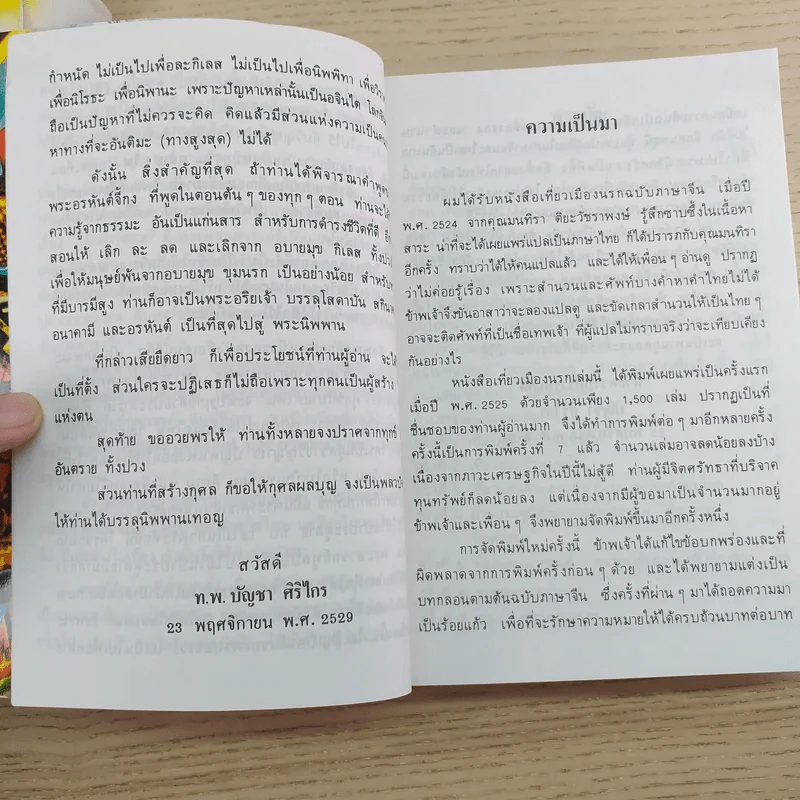 กำหนัด ไม่เป็นไปเพื่อละกิเลส ไม่เป็นไปเพื่อนิพพิทา เพื่อวิรา
เพื่อนิโรธะ เพื่อนิพานะ เพราะปัญหาเหล่านั้นเป็นอจินไต โลก
ถือเป็นปัญหาที่ไม่ควรจะคิด คิดแล้วมีส่วนแห่งความเป็นคน
หาทางที่จะอันติมะ (ทางสูงสุด) ไม่ได้
ดังนั้น สิ่งสำคัญที่สุด ถ้าท่านได้พิจารณาคำพูด
พระอรหันต์จี้กง ที่พูดในตอนต้น ๆ ของทุก ๆ ตอน ท่านจะได้
ความรู้จากธรรมะ อันเป็นแก่นสาร สำหรับการดำรงชีวิตที่ดี
สอนให้ เลิก ละ ลด และเลิกจาก อบายมุข กิเลส ทั้งปว
เพื่อให้มนุษย์พ้นจากอบายมุข ขุมนรก เป็นอย่างน้อย สำหรับ
ที่มีบารมีสูง ท่านก็อาจเป็นพระอริยเจ้า บรรลุโสดาบัน สกิทา
อนาคามี และอรหันต์ เป็นที่สุดไปสู่ พระนิพพาน
ที่กล่าวเสียยืดยาว ก็เพื่อประโยชน์ที่ท่านผู้อ่าน จะได้
เป็นที่ตั้ง ส่วนใครจะปฏิเสธก็ไม่ถือเพราะทุกคนเป็นผู้สร้าง
แห่งตน
สุดท้าย ขออวยพรให้ ท่านทั้งหลายจงปราศจากทุกข์
อันตราย ทั้งปวง
ส่วนท่านที่สร้างกุศล ก็ขอให้กุศลผลบุญ จงเป็นพลว
ให้ท่านได้บรรลุนิพพานเทอญ
สวัสดี
ท.พ. บัญชา ศิริไกร
23 พฤศจิกายน พ.ศ. 2529
ความเป็นมา
ผมได้รับหนังสือเที่ยวเมืองนรกฉบับภาษาจีน เมื่อปี
พ.ศ. 2524 จากคุณมนทิรา ติยะวัชราพงษ์ รู้สึกซาบซึ้งในเนื้อหา
สาระ น่าที่จะได้เผยแพร่แปลเป็นภาษาไทย ก็ได้ปรารภกับคุณมนทิรา
อีกครั้ง ทราบว่าได้ให้คนแปลแล้ว และได้ให้เพื่อน ๆ อ่านดู ปรากฏ
ว่าไม่ค่อยรู้เรื่อง เพราะสำนวนและศัพท์บางคำหาคำไทยไม่ได้
ข้าพเจ้าจึงขันอาสาว่าจะลองแปลดู และขัดเกลาสำนวนให้เป็นไทย ๆ
อาจจะติดศัพท์ที่เป็นชื่อเทพเจ้า ที่ผู้แปลไม่ทราบจริงว่าจะเทียบเคียง
กันอย่างไร
หนังสือเที่ยวเมืองนรกเล่มนี้ ได้พิมพ์เผยแพร่เป็นครั้งแรก
เมื่อปี พ.ศ. 2525 ด้วยจำนวนเพียง 1,500 เล่ม ปรากฏเป็นที่
ชื่นชอบของท่านผู้อ่านมาก จึงได้ทำการพิมพ์ต่อ ๆ มาอีกหลายครั้ง
ครั้งนี้เป็นการพิมพ์ครั้งที่ 7 แล้ว จำนวนเล่มอาจลดน้อยลงบ้าง
เนื่องจากภาวะเศรษฐกิจในปีนี้ไม่สู้ดี ท่านผู้มีจิตศรัทธาที่บริจาค
ทุนทรัพย์ก็ลดน้อยลง แต่เนื่องจากมีผู้ขอมาเป็นจำนวนมากอยู่
ข้าพเจ้าและเพื่อน ๆ จึงพยายามจัดพิมพ์ขึ้นมาอีกครั้งหนึ่ง
การจัดพิมพ์ใหม่ครั้งนี้ ข้าพเจ้าได้แก้ไขข้อบกพร่องและที่
ผิดพลาดจากการพิมพ์ครั้งก่อน ๆ ด้วย และได้พยายามแต่งเป็น
บทกลอนตามต้นฉบับภาษาจีน ซึ่งครั้งที่ผ่าน ๆ มาได้ถอดความมา
เป็นร้อยแก้ว เพื่อที่จะรักษาความหมายให้ได้ครบถ้วนบาทต่อบาท